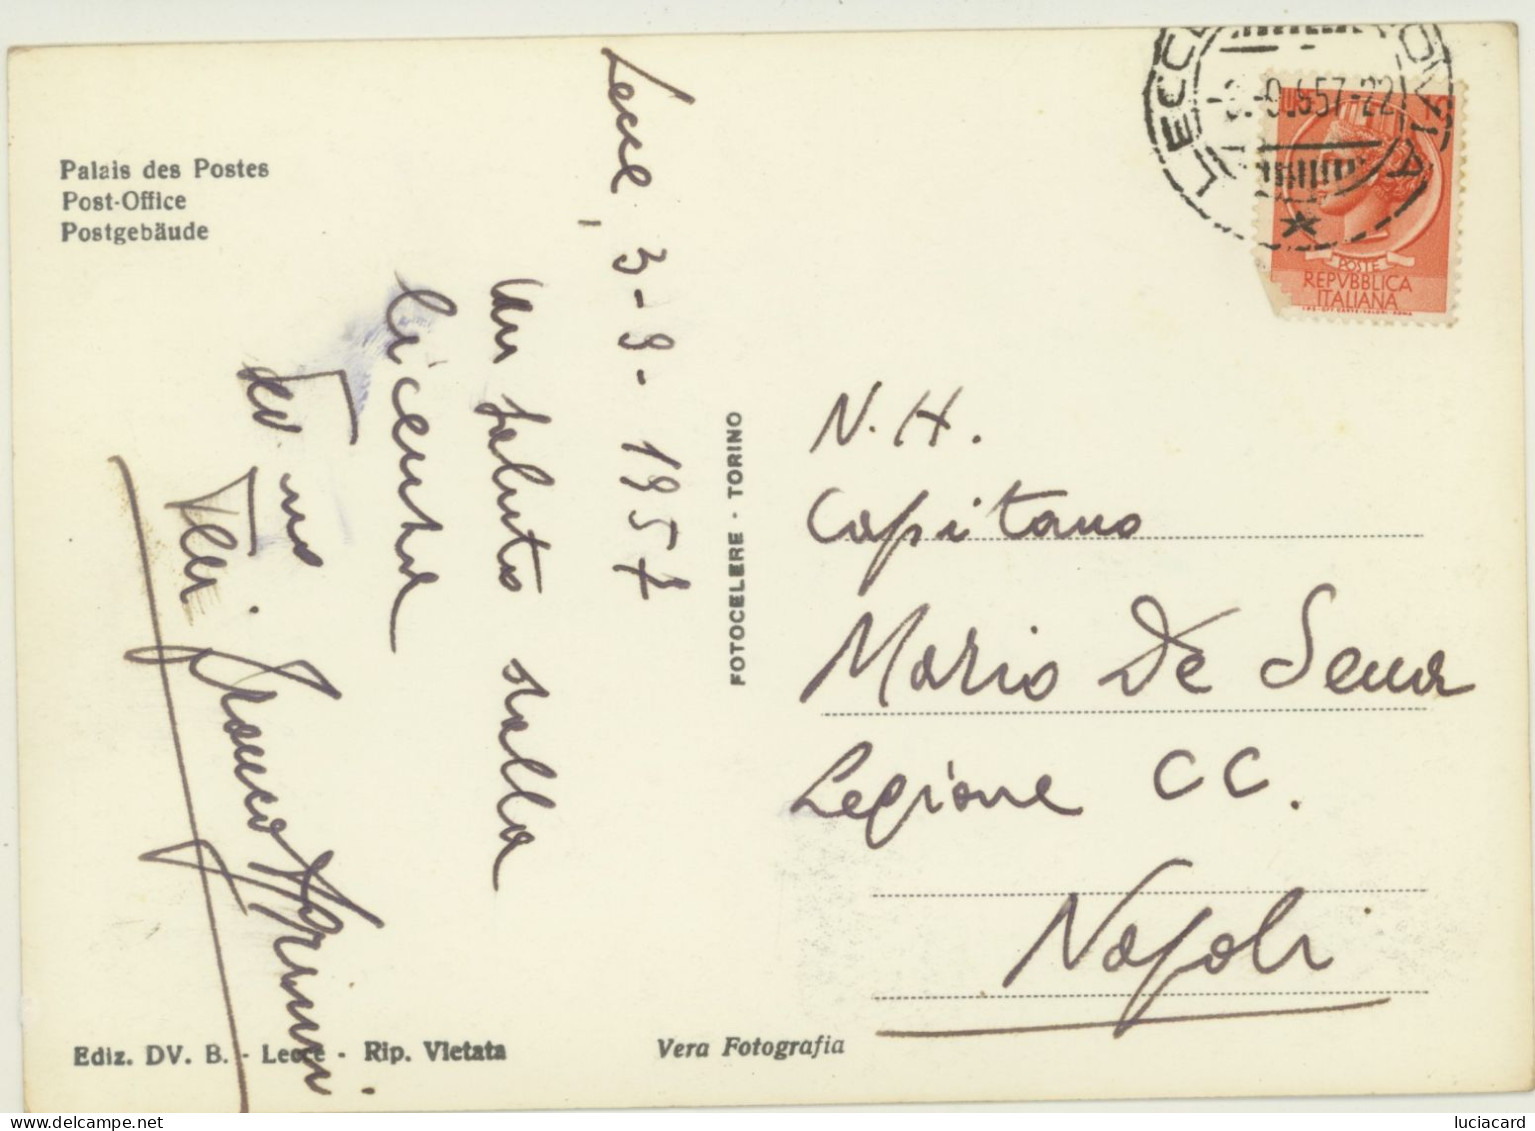 Palais des Postes
Post-Office
Postgebäude
Lecce, 3-9-1957
Un saluto dalla
licenza
dev.mo
FOTOCELERE - TORINO
POSTE
REPVBBLICA
ITALIANA
N.H.
Capitano
Mario De Sena
Legione CC.
Napoli
Ediz. DV. B. - Lecce - Rip. Vietata
Vera Fotografia
luciacard